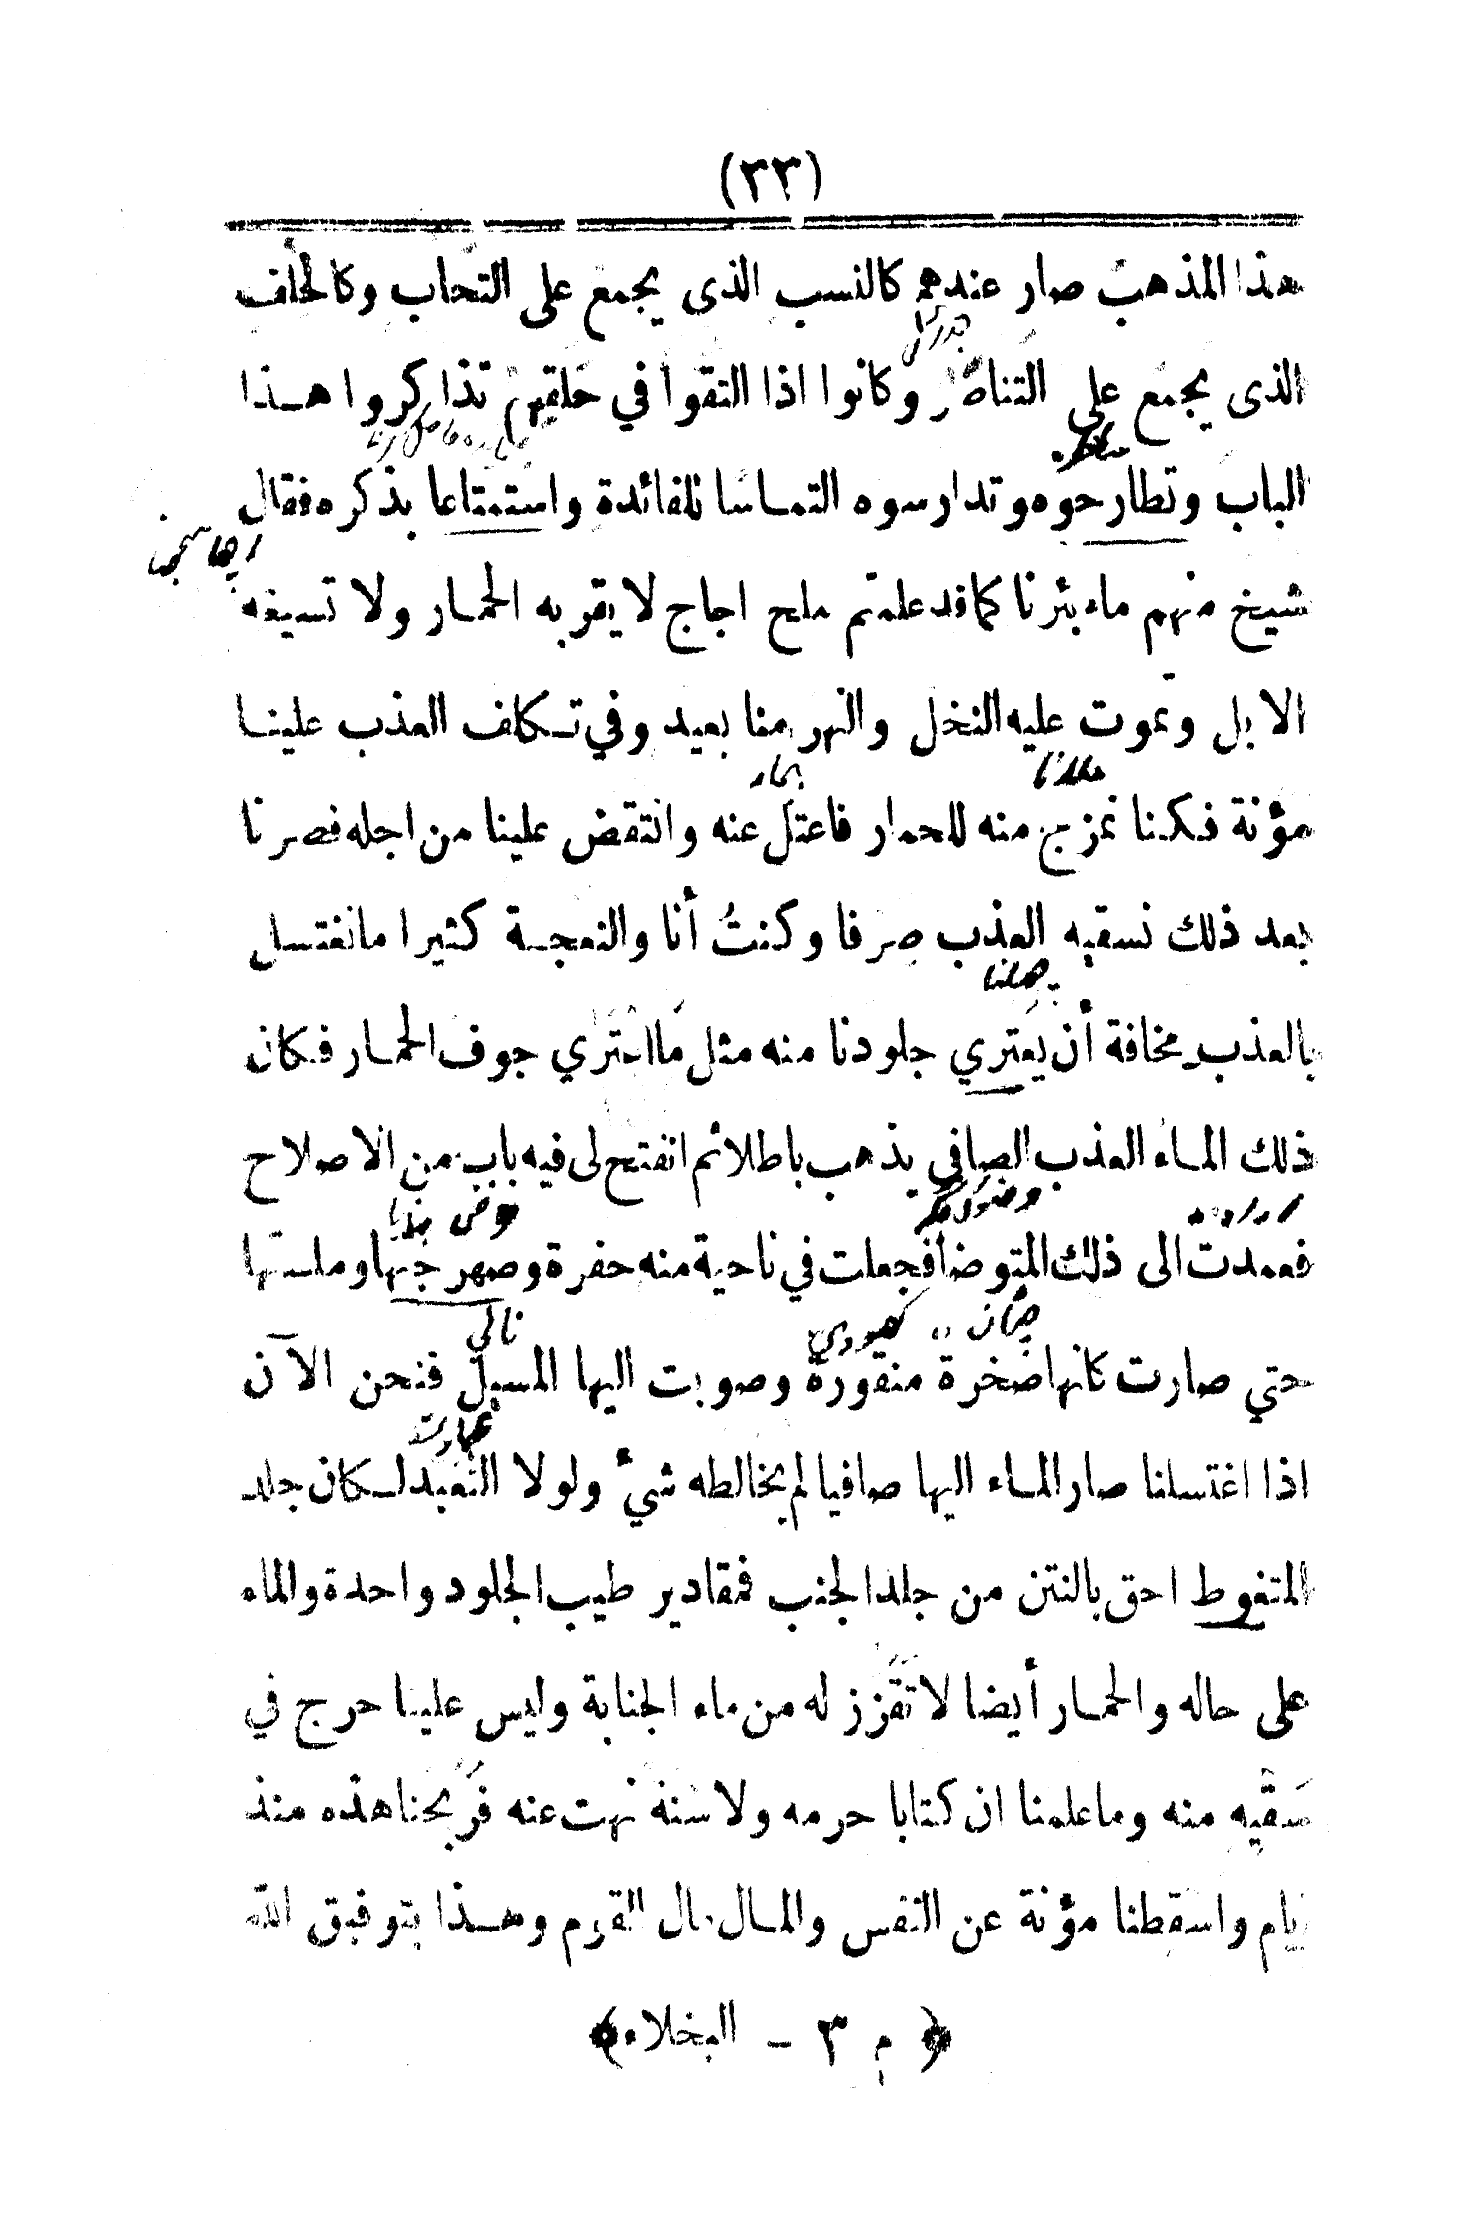 (٣٣)
هذا المذهب صار عندهم كالنسب الذى يجمع على التحاب وكالحلف
الذى يجمع على التناصر وكانوا اذا التقوا في حلقهم تذاكروا هذا
الباب وتطارحوه وتدارسوه التماسا للفائدة واستمتاعا بذكره فقال
شيخ منهم ماء بئرنا كما قد علمتم ملح اجاج لا يقربه الحمار ولا تسيغه
الابل وتموت عليه النخل والنهر منا بعيد وفي تكلف العذب علينا
مؤنة فكنا نمزج منه للحمار فاعتل عنه وانتقض علينا من اجله فصرنا
بعد ذلك نسقيه العذب صرفا وكنتُ أنا والنعجة كثيرا ما نغتسل
بالعذب مخافة أن يعتري جلودنا منه مثل ما اعترى جوف الحمار فكان
ذلك الماء العذب الصافي يذهب باطلا ثم انفتح لى فيه باب من الاصلاح
فعمدت الى ذلك المتوضأ فجعلت في ناحية منه حفرة وصهرجتها وملستها
حتي صارت كانها صخرة منقورة وصوبت اليها المسيل فنحن الآن
اذا اغتسلنا صار الماء اليها صافيا لم يخالطه شيء ولولا التعبد لكان جلد
المتغوط احق بالنتن من جلد الجنب فمقادير طيب الجلود واحدة والماء
على حاله والحمار أيضا لا تقزز له من ماء الجنابة وليس علينا حرج في
سقيه منه وما علمنا ان كتابا حرمه ولا سنة نهت عنه فربحنا هذه منذ
ايام واسقطنا مؤنة عن النفس والمال مال القوم وهذا بتوفيق الله
﴿ م ٣ - البخلاء ﴾